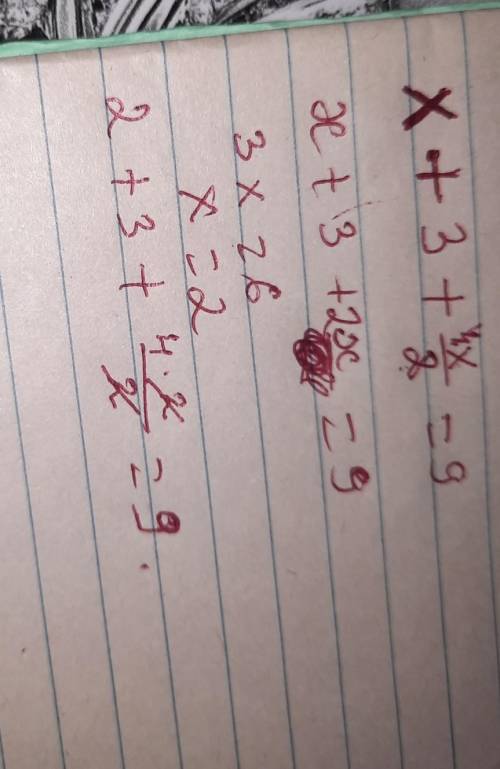 x + 3 + 4x/2 = 9
x + 3 + 2x = 9
3x = 6
x = 2
2 + 3 + 4·2/2 = 9.